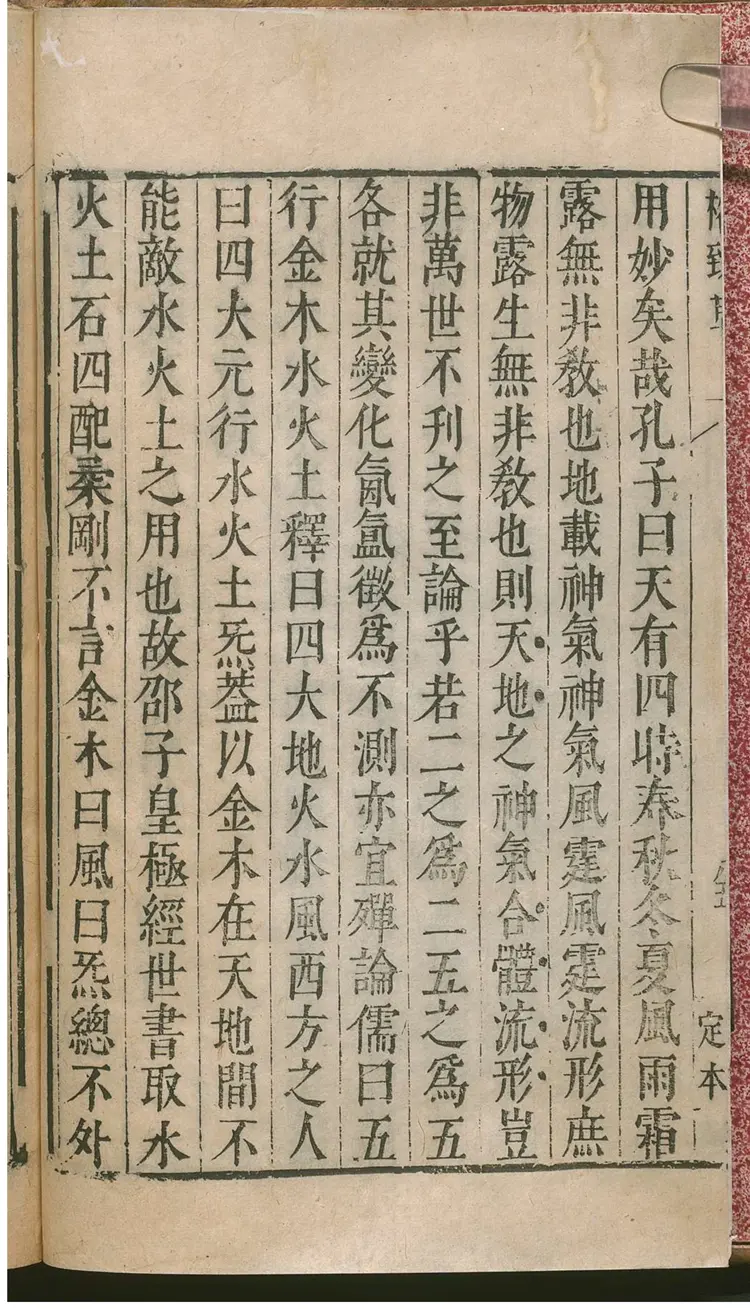 格致草 定本
用妙矣哉孔子曰天有四時春秋冬夏風雨霜
露無非敎也地載神氣神氣風霆風霆流形庶
物露生無非敎也則天地之神氣合體流形豈
非萬世不刋之至論乎若二之爲二五之爲五
各就其變化氤氳徵爲不測亦宜殫論儒曰五
行金木水火土釋曰四大地火水風西方之人
曰四大元行水火土炁葢以金木在天地間不
能敵水火土之用也故邵子皇極經世書取水
火土石四配柔剛不言金木曰風曰炁總不外